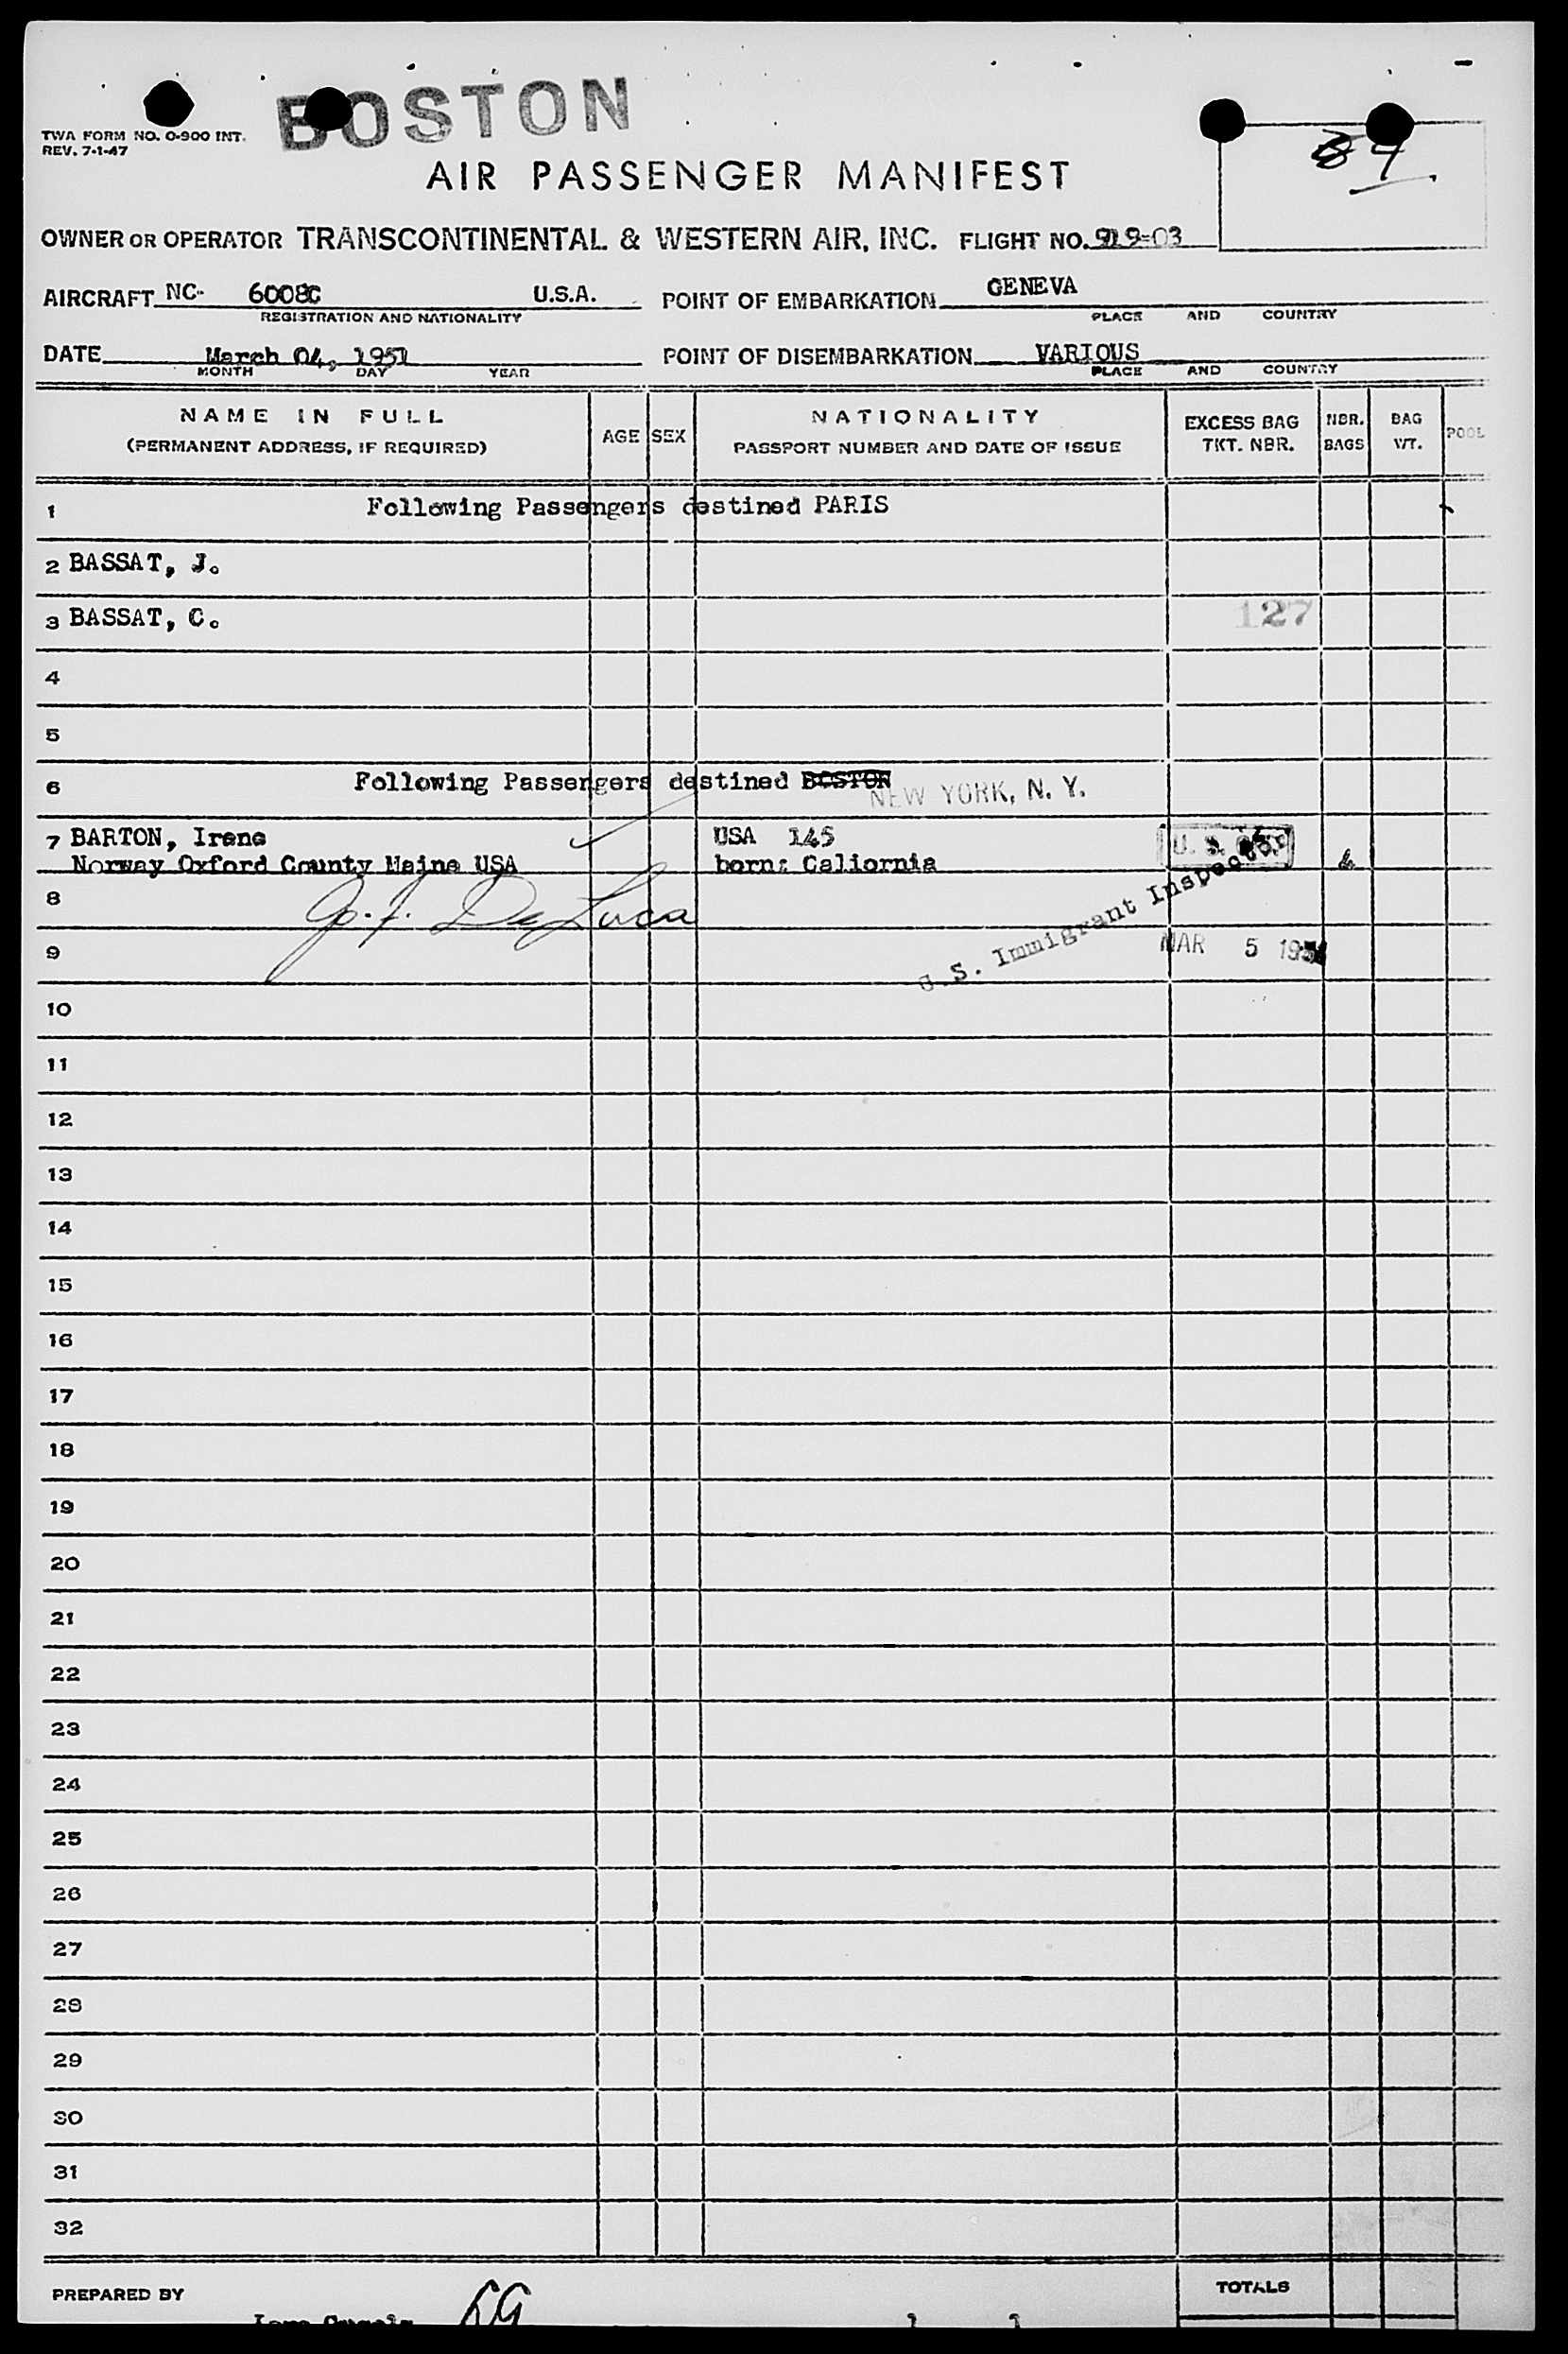 BOSTON
TWA FORM NO. O-900 INT.
REV. 7-1-47
84
AIR PASSENGER MANIFEST
OWNER OR OPERATOR TRANSCONTINENTAL & WESTERN AIR, INC. FLIGHT NO. 919-03
AIRCRAFT NC- 6008C U.S.A. POINT OF EMBARKATION GENEVA
REGISTRATION AND NATIONALITY PLACE AND COUNTRY
DATE March 04, 1951 POINT OF DISEMBARKATION VARIOUS
MONTH DAY YEAR PLACE AND COUNTRY
NAME IN FULL
(PERMANENT ADDRESS, IF REQUIRED)
AGE SEX
NATIONALITY
PASSPORT NUMBER AND DATE OF ISSUE
EXCESS BAG
TKT. NBR.
NBR.
BAGS
BAG
WT.
POOL
1 Following Passengers destined PARIS
2 BASSAT, J.
3 BASSAT, C. 127
4
5
6 Following Passengers destined BOSTON NEW YORK, N. Y.
7 BARTON, Irene USA 145
Norway Oxford County Maine USA born: Caliornia
8 
9 U. S. Immigrant Inspector MAR 5 1951
10
11
12
13
14
15
16
17
18
19
20
21
22
23
24
25
26
27
28
29
30
31
32
PREPARED BY
TOTALS